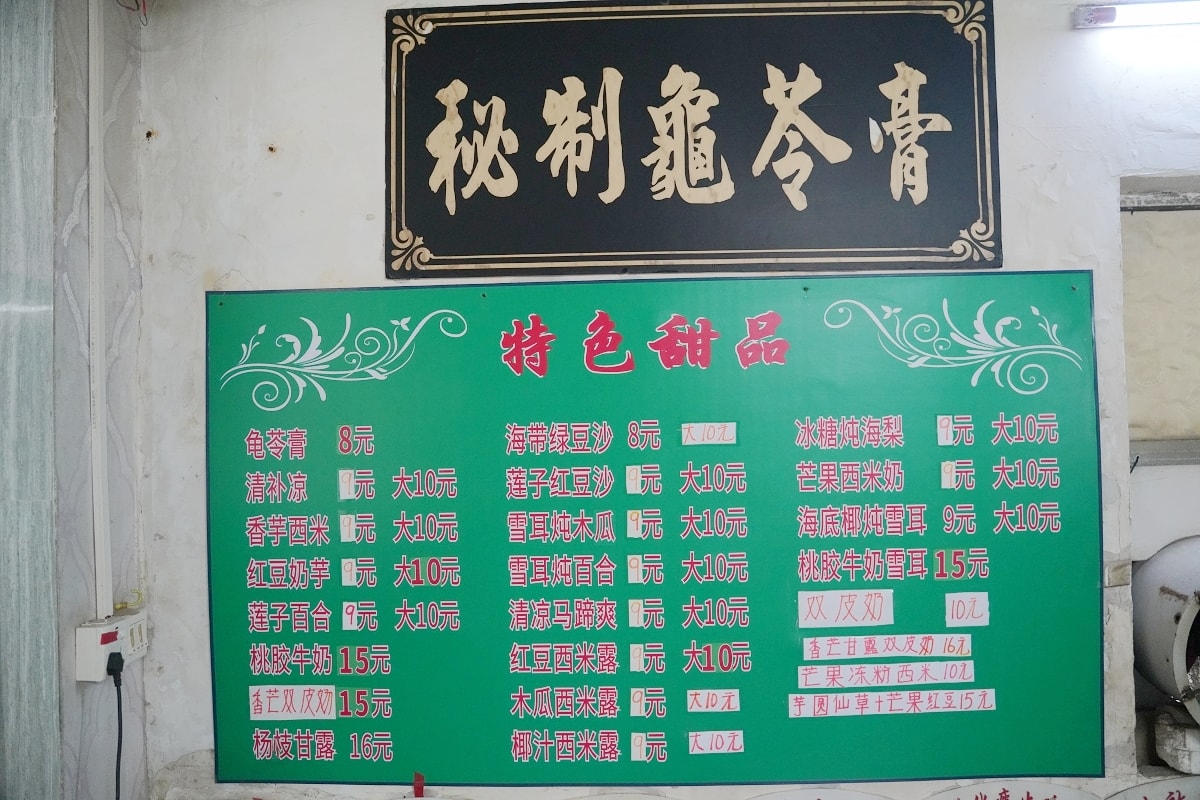 秘制龜苓膏
特色甜品
龟苓膏 8元
清补凉 9元 大10元
香芋西米 9元 大10元
红豆奶芋 9元 大10元
莲子百合 9元 大10元
桃胶牛奶 15元
香芒双皮奶 15元
杨枝甘露 16元
海带绿豆沙 8元 大10元
莲子红豆沙 9元 大10元
雪耳炖木瓜 9元 大10元
雪耳炖百合 9元 大10元
清凉马蹄爽 9元 大10元
红豆西米露 9元 大10元
木瓜西米露 9元 大10元
椰汁西米露 9元 大10元
冰糖炖海梨 9元 大10元
芒果西米奶 9元 大10元
海底椰炖雪耳 9元 大10元
桃胶牛奶雪耳 15元
双皮奶 10元
香芒甘露双皮奶 16元
芒果冻粉西米10元
芋圆仙草+芒果红豆15元